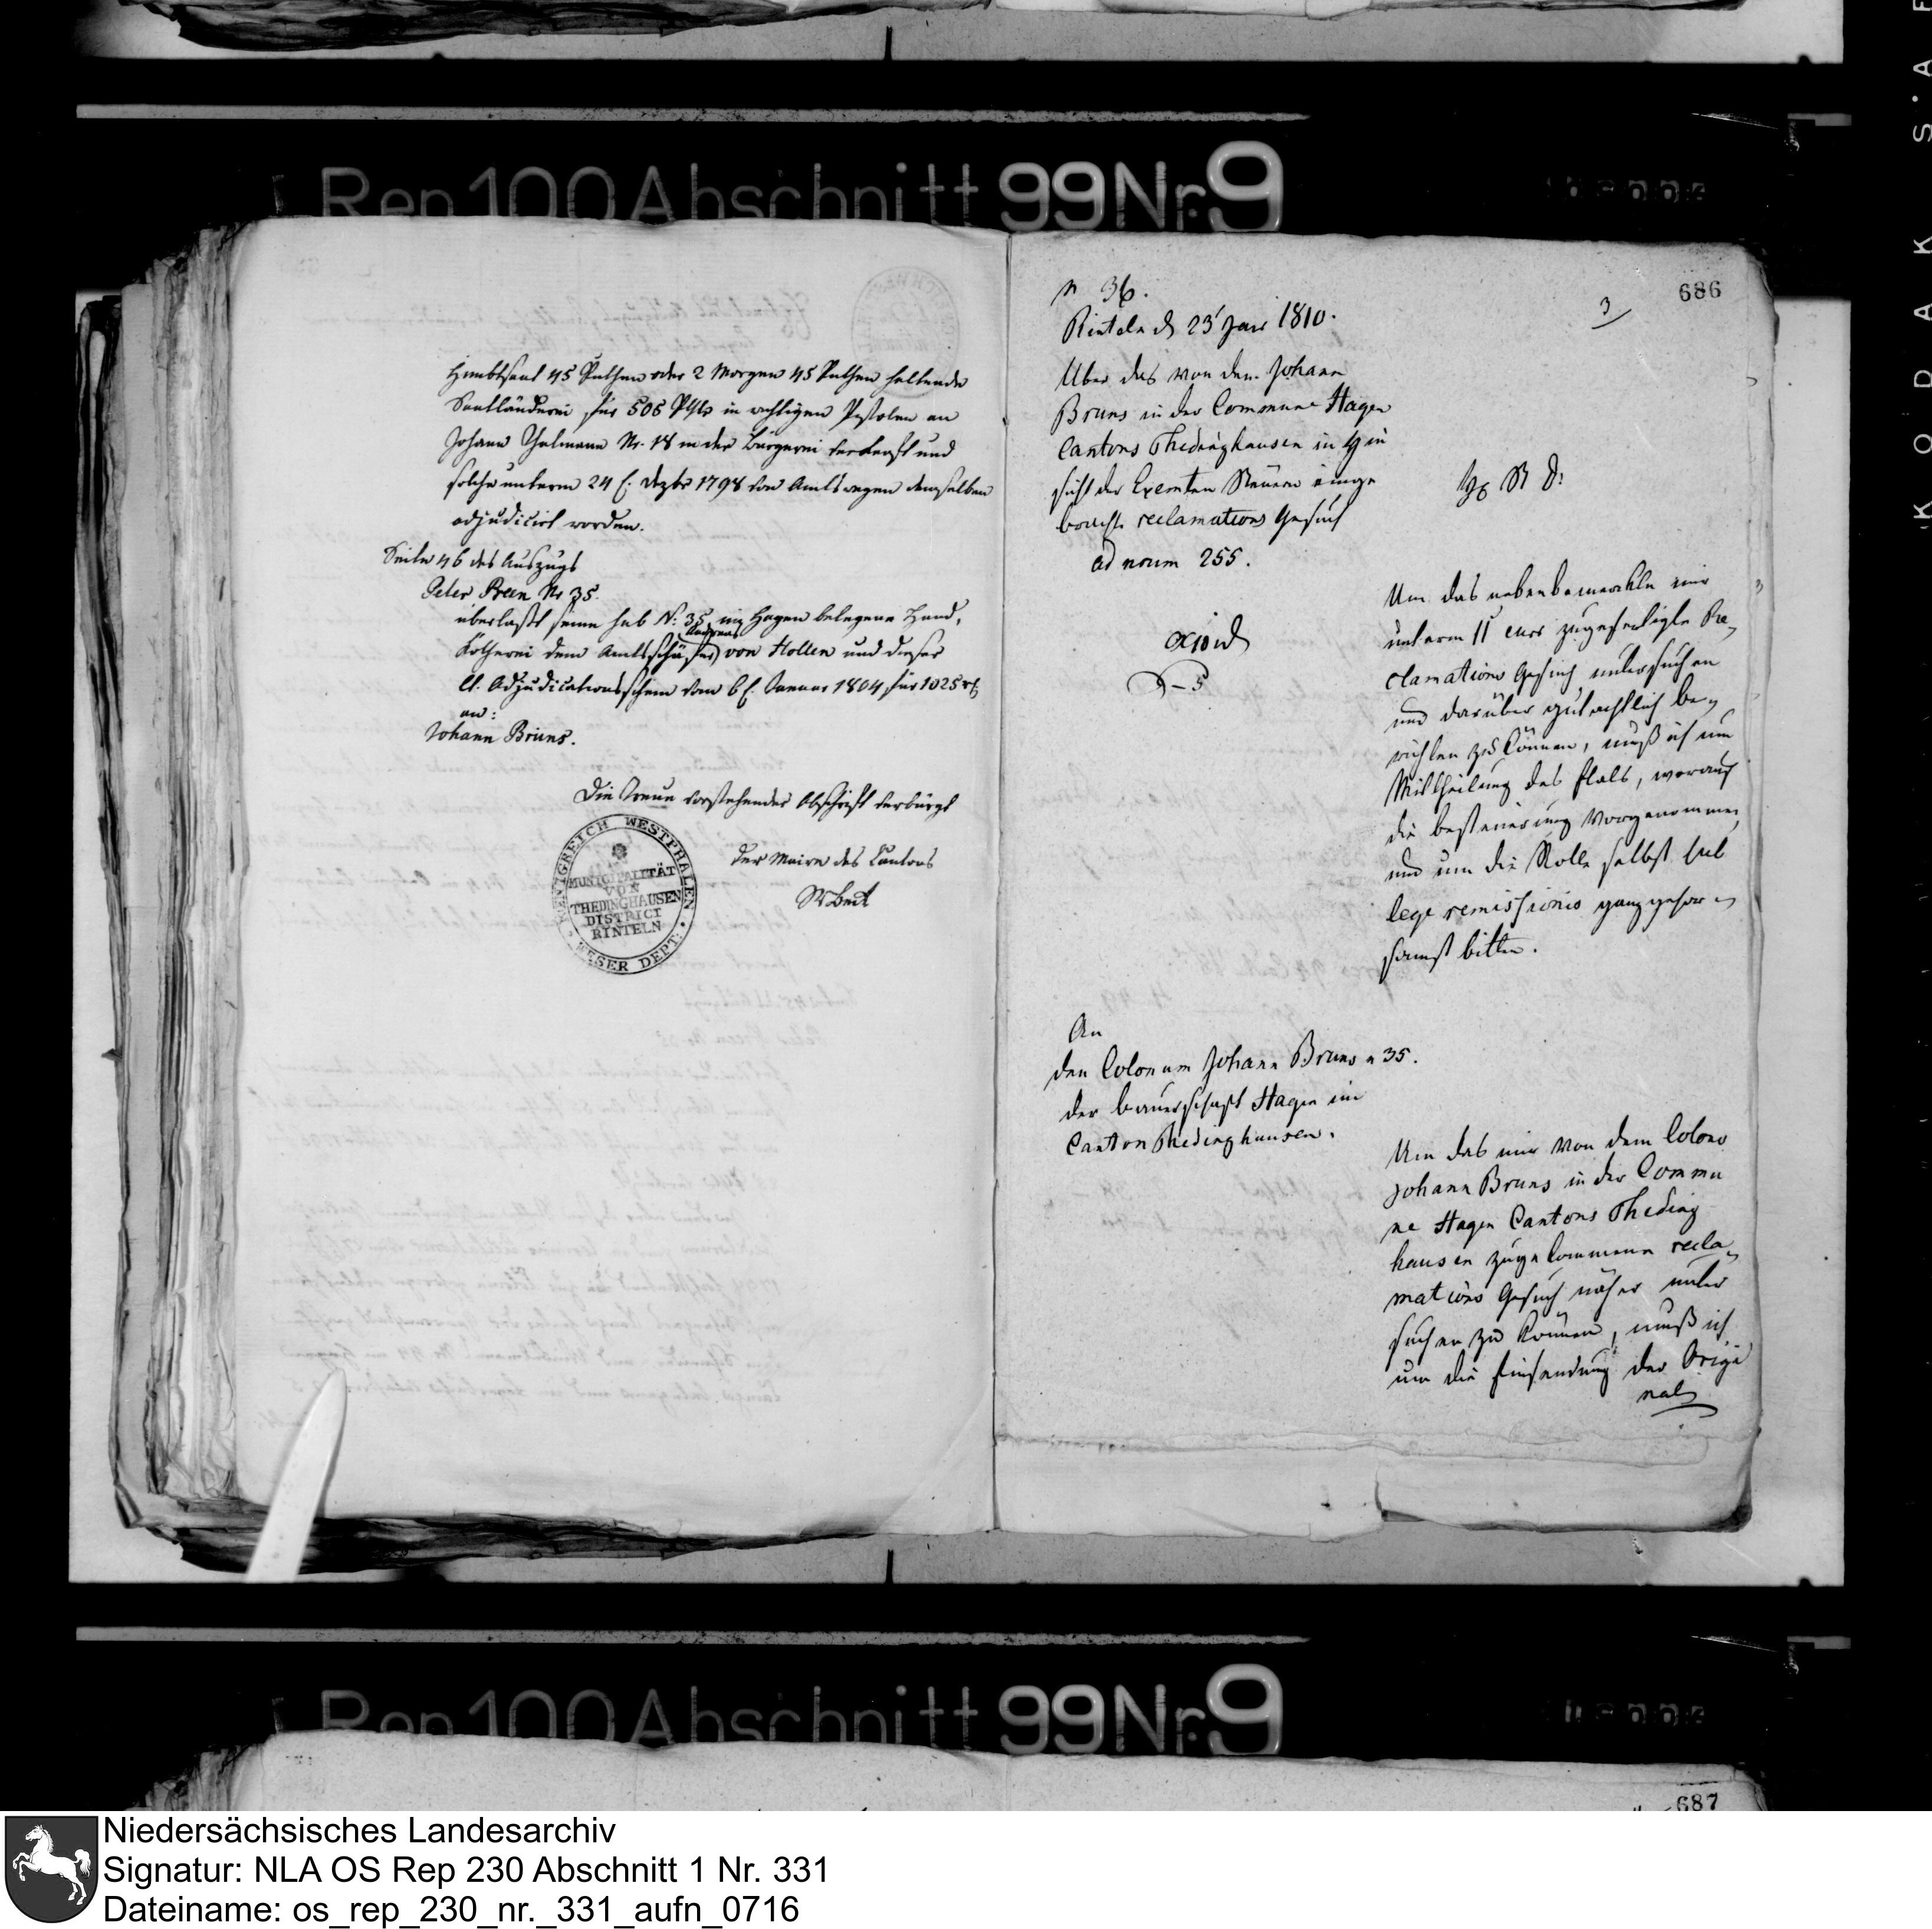 Rep 100 Abschnitt 99 Nr. 9
Himbtsaat 45 Ruthen oder 2 Morgen 45 Ruthen haltende
Saatländerei für 505 Rthlr in wichtigen Pistolen an
Johann Thalmann Nr. 18 in der Bürgerei verkauft und
solche unterm 24 t. Dezbr 1798 von Amtswegen demselben
adjudicirt worden.
Seite 46 des Auszugs
Peter Preen Nr 35.
überlasst seine sub N: 35 in Hagen belegene
Kötherei dem von Hollen und dieser
lt. Adjudicationsschein vom 6 t. Januar 1804 für 1025 rt
an:
Johann Bruns.
Die Treue vorstehender Abschrift verbürgt
der Maire des Cantons
KÖNIGREICH WESTPHALEN
MUNICIPALITÄT
VON
THEDINGHAUSEN
DISTRICT
RINTELN
WESER DEPT.
686
3
n 36.
Rinteln d 23 1810.
Über das von dem Johann
Bruns in der Commune Hagen
Cantons Thedinghausen in Hin
sicht der Exemten Steuern einge
brachte reclamations Gesuch
ad num 255.
Um das nebenbemerkte mir
unterm 11 curr zugefertigte Re
clamations Gesuch untersuchen
und darüber gutachtlich be
richten zu können, muß ich um
Mittheilung des Etats, worauf
die besteuerung vorgenommen
und um die Rolle selbst sub
lege remissionis ganz gehor
samst bitten.
An
den Colonum Johann Bruns n 35.
der bauerschaft Hagen im
Canton Thedinghausen.
Um das mir von dem Colono
Johann Bruns in der Commu
ne Hagen Cantons Theding
hausen zugekommene recla
mations Gesuch näher unter
suchen zu können, muß ich
um die Einsendung der Origi
nal
Rep 100 Abschnitt 99 Nr. 9
687
KODAK S.A
Niedersächsisches Landesarchiv
Signatur: NLA OS Rep 230 Abschnitt 1 Nr. 331
Dateiname: os_rep_230_nr._331_aufn_0716